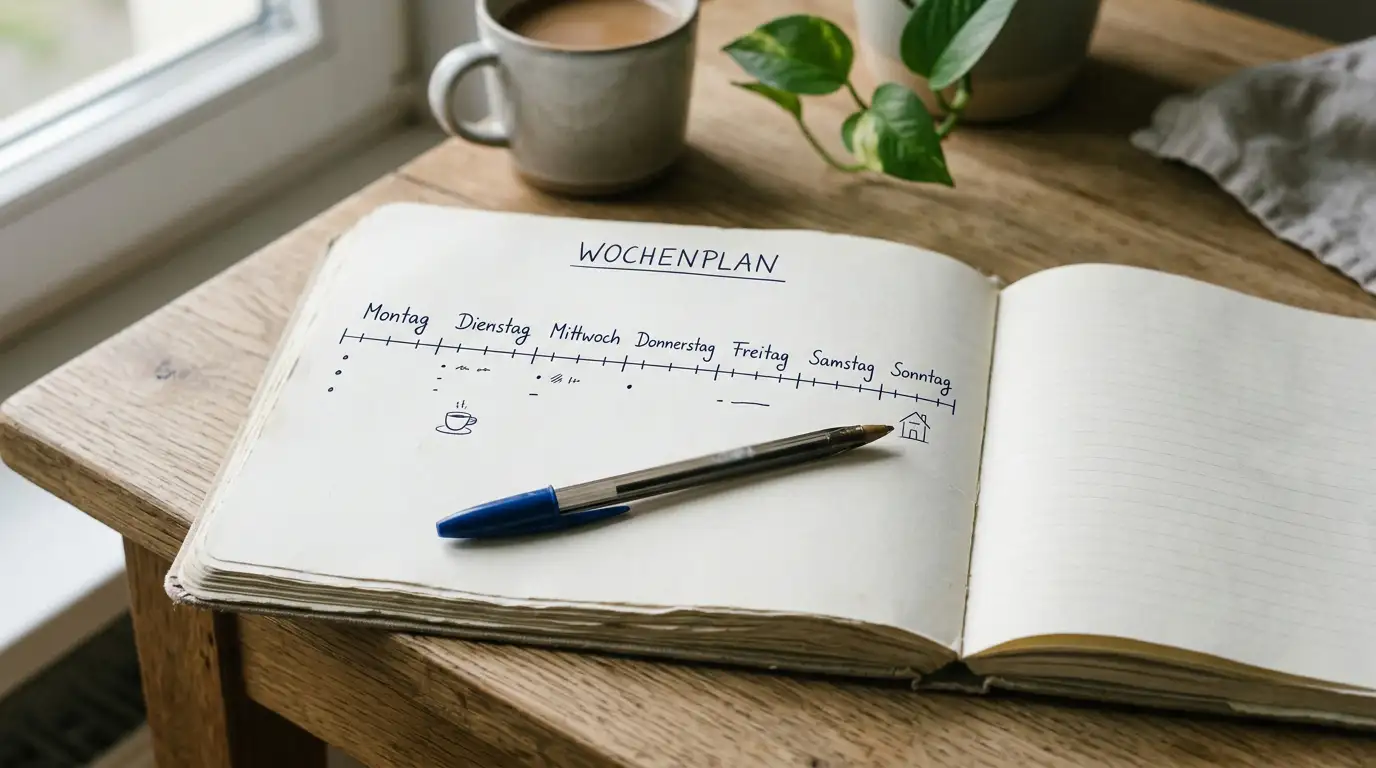 WOCHENPLAN
Montag Dienstag Mittwoch Donnerstag Freitag Samstag Sonntag